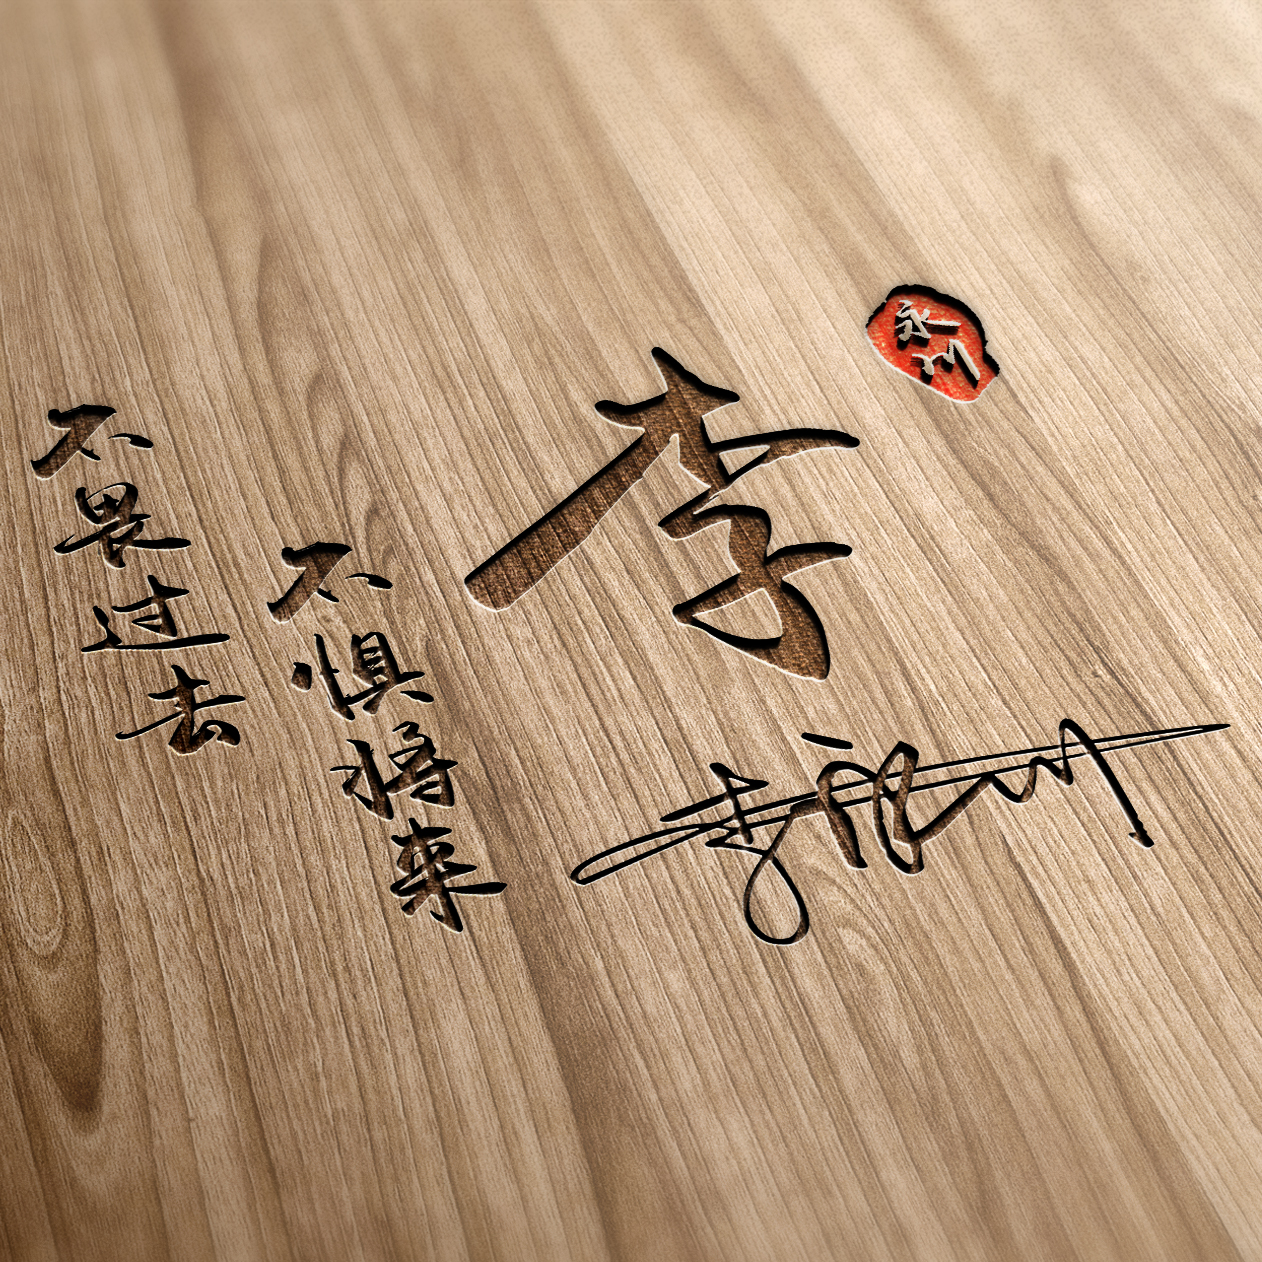 不畏过去
不惧将来
李
永川
李永川